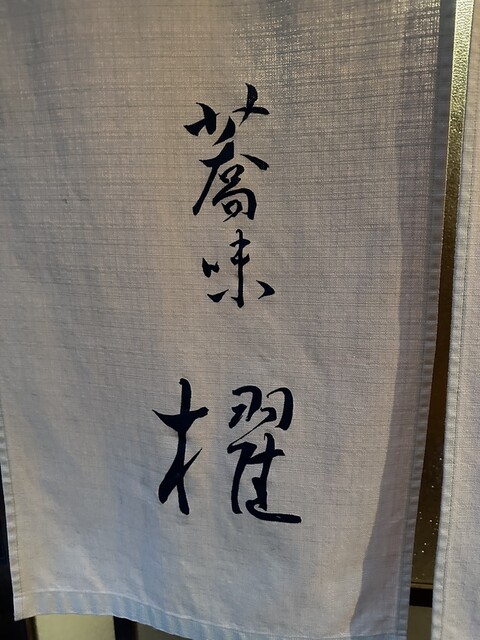 蕎味 櫂